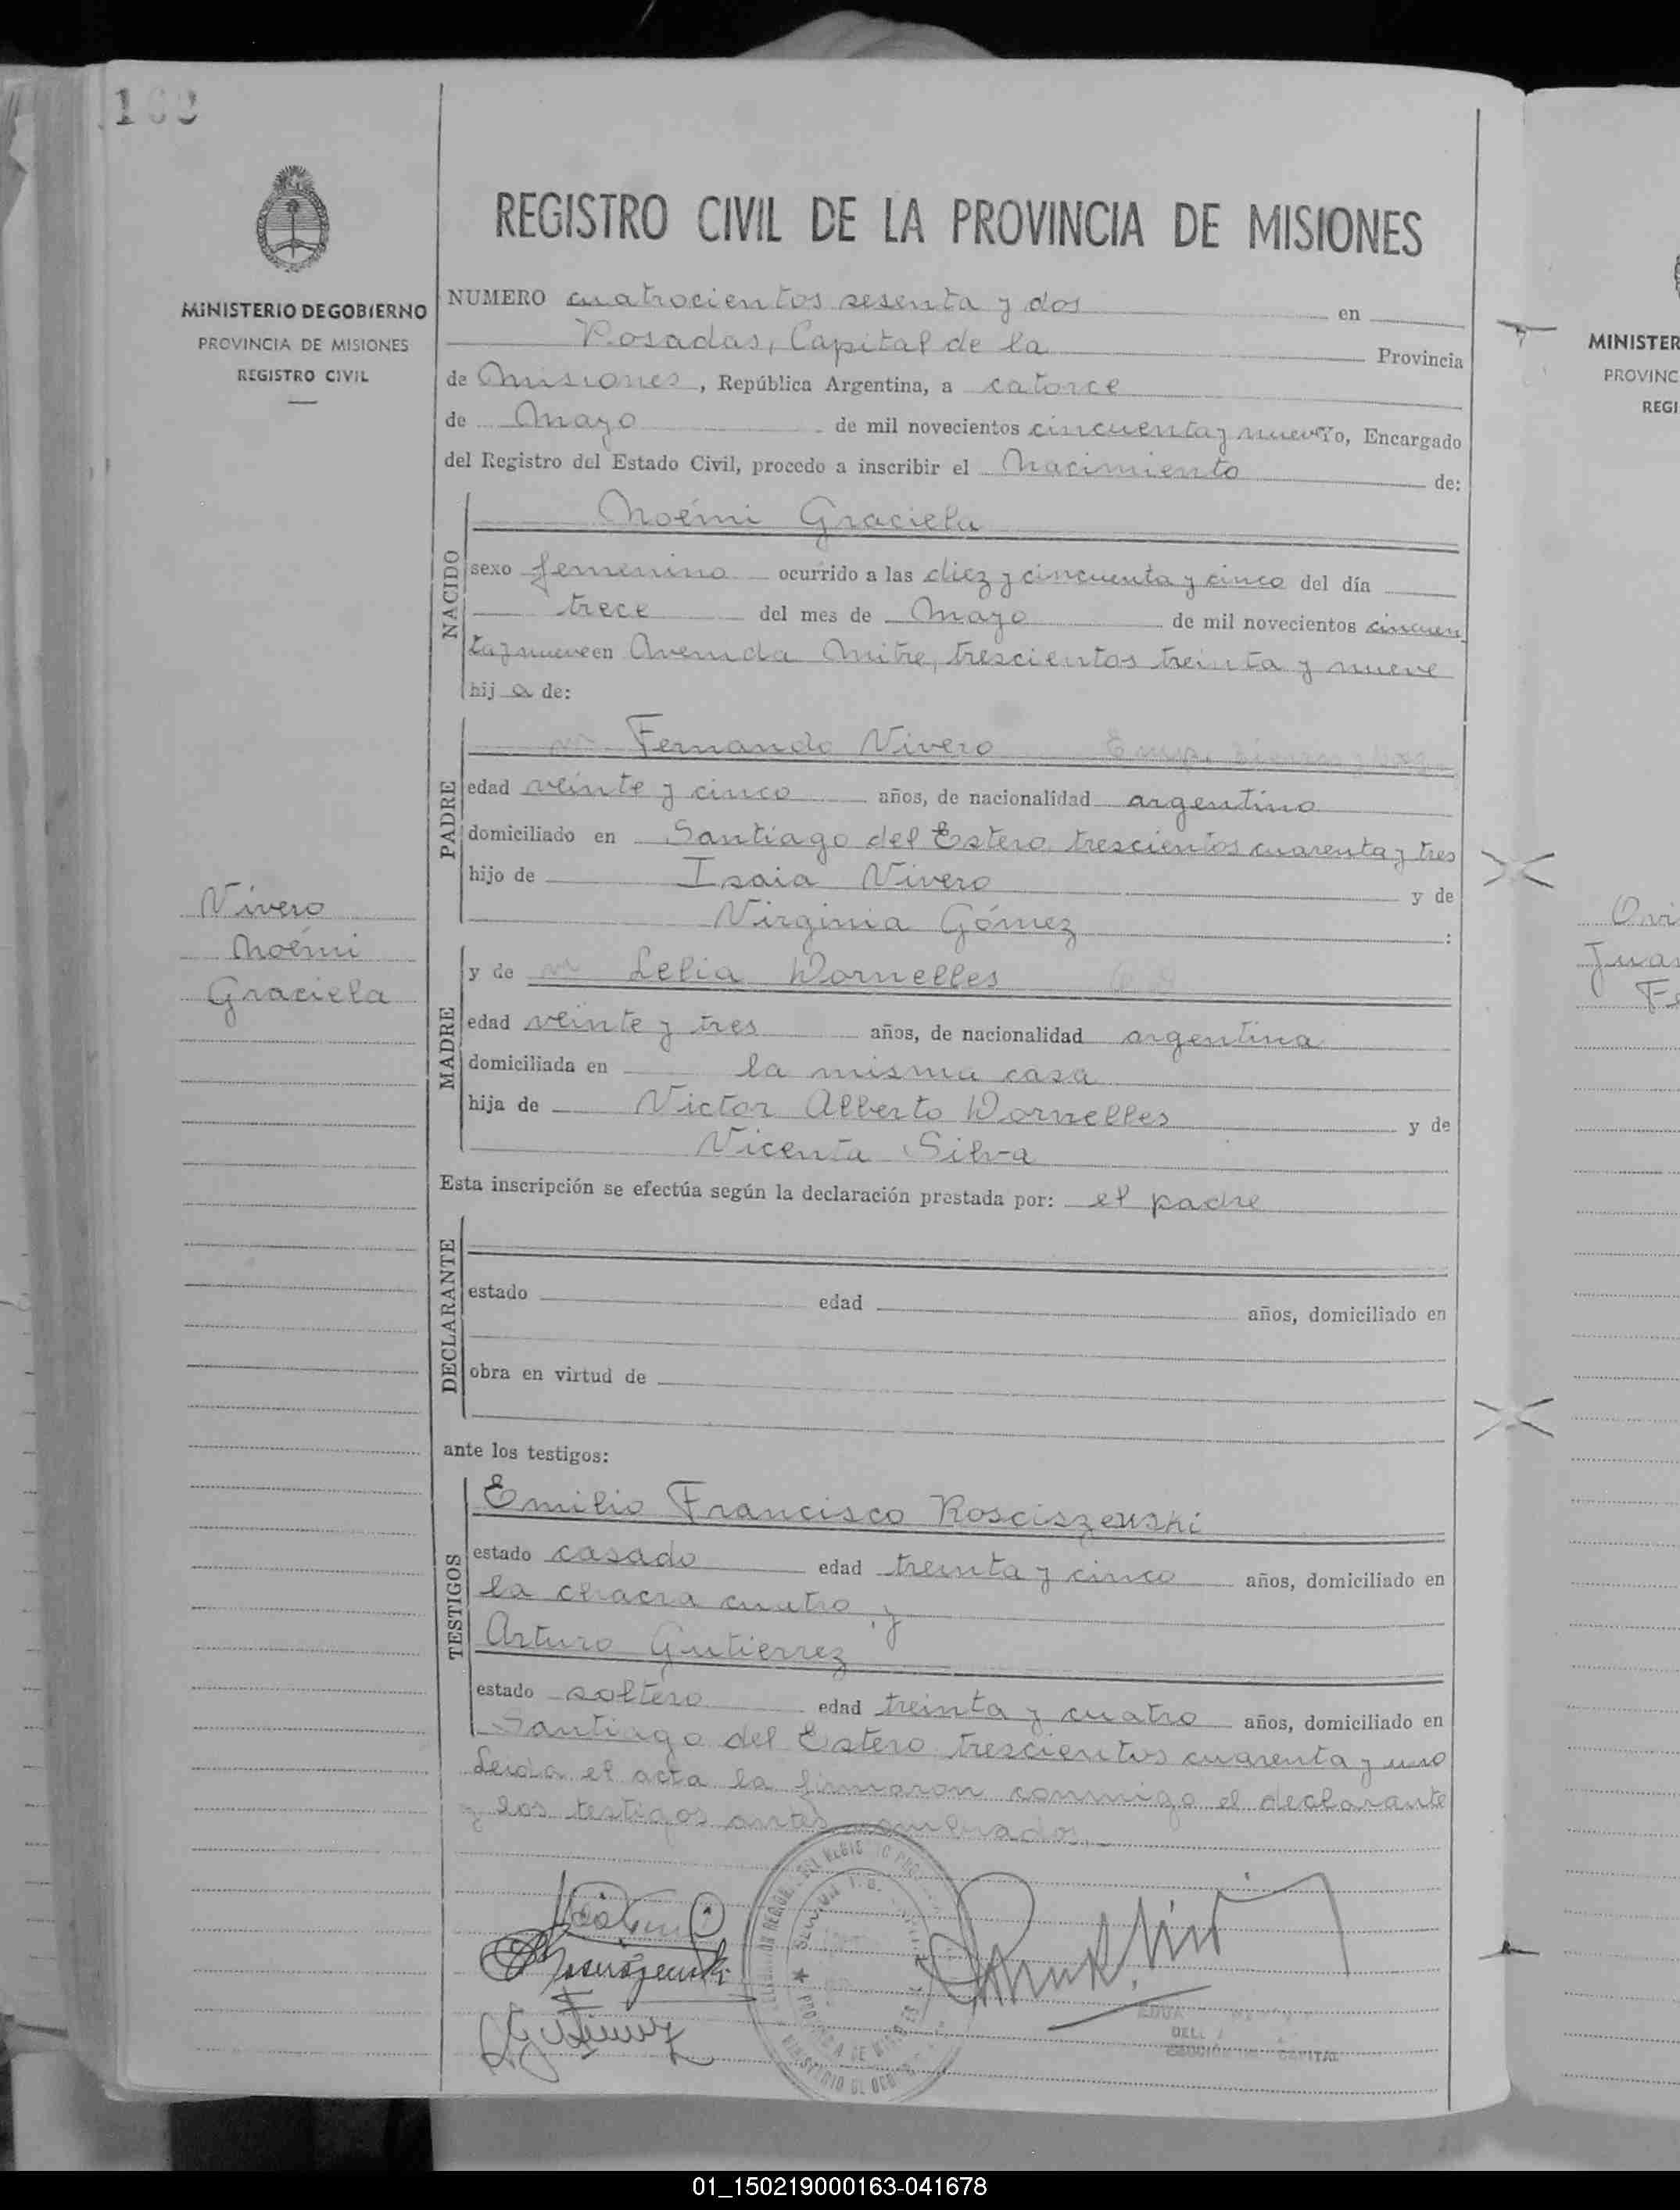 REGISTRO CIVIL DE LA PROVINCIA DE MISIONES
MINISTERIO DE GOBIERNO
PROVINCIA DE MISIONES
REGISTRO CIVIL
NUMERO cuatrocientos sesenta y dos en
Posadas, Capital de la Provincia
de Misiones, República Argentina, a catorce
de Mayo de mil novecientos cincuenta y nueve Yo, Encargado
del Registro del Estado Civil, procedo a inscribir el Nacimiento de:
NACIDO
Noémi Graciela
sexo femenino ocurrido a las diez y cincuenta y cinco del día
trece del mes de Mayo de mil novecientos cincuen
ta y nueve en Avenida Mitre, trescientos treinta y nueve
hij a de:
PADRE
Fernando Vivero
edad veinte y cinco años, de nacionalidad argentino
domiciliado en Santiago del Estero trescientos cuarenta y tres
hijo de Isaia Vivero y de
Virginia Gómez :
Vivero
Noémi
Graciela
MADRE
y de Lelia Dornelles
edad veinte y tres años, de nacionalidad argentina
domiciliada en la misma casa
hija de Victor Alberto Dornelles y de
Vicenta Silva
Esta inscripción se efectúa según la declaración prestada por: el padre
DECLARANTE
estado edad años, domiciliado en
obra en virtud de
ante los testigos:
TESTIGOS
Emilio Francisco Rosciszewski
estado casado edad treinta y cinco años, domiciliado en
la chacra cuatro y
Arturo Gutierrez
estado soltero edad treinta y cuatro años, domiciliado en
Santiago del Estero trescientos cuarenta y uno
Leida el acta la firmaron conmigo el declarante
y los testigos antes nombrados.
CAPITAL
MINISTER
PROVINC
REGI
Juan
01_150219000163-041678